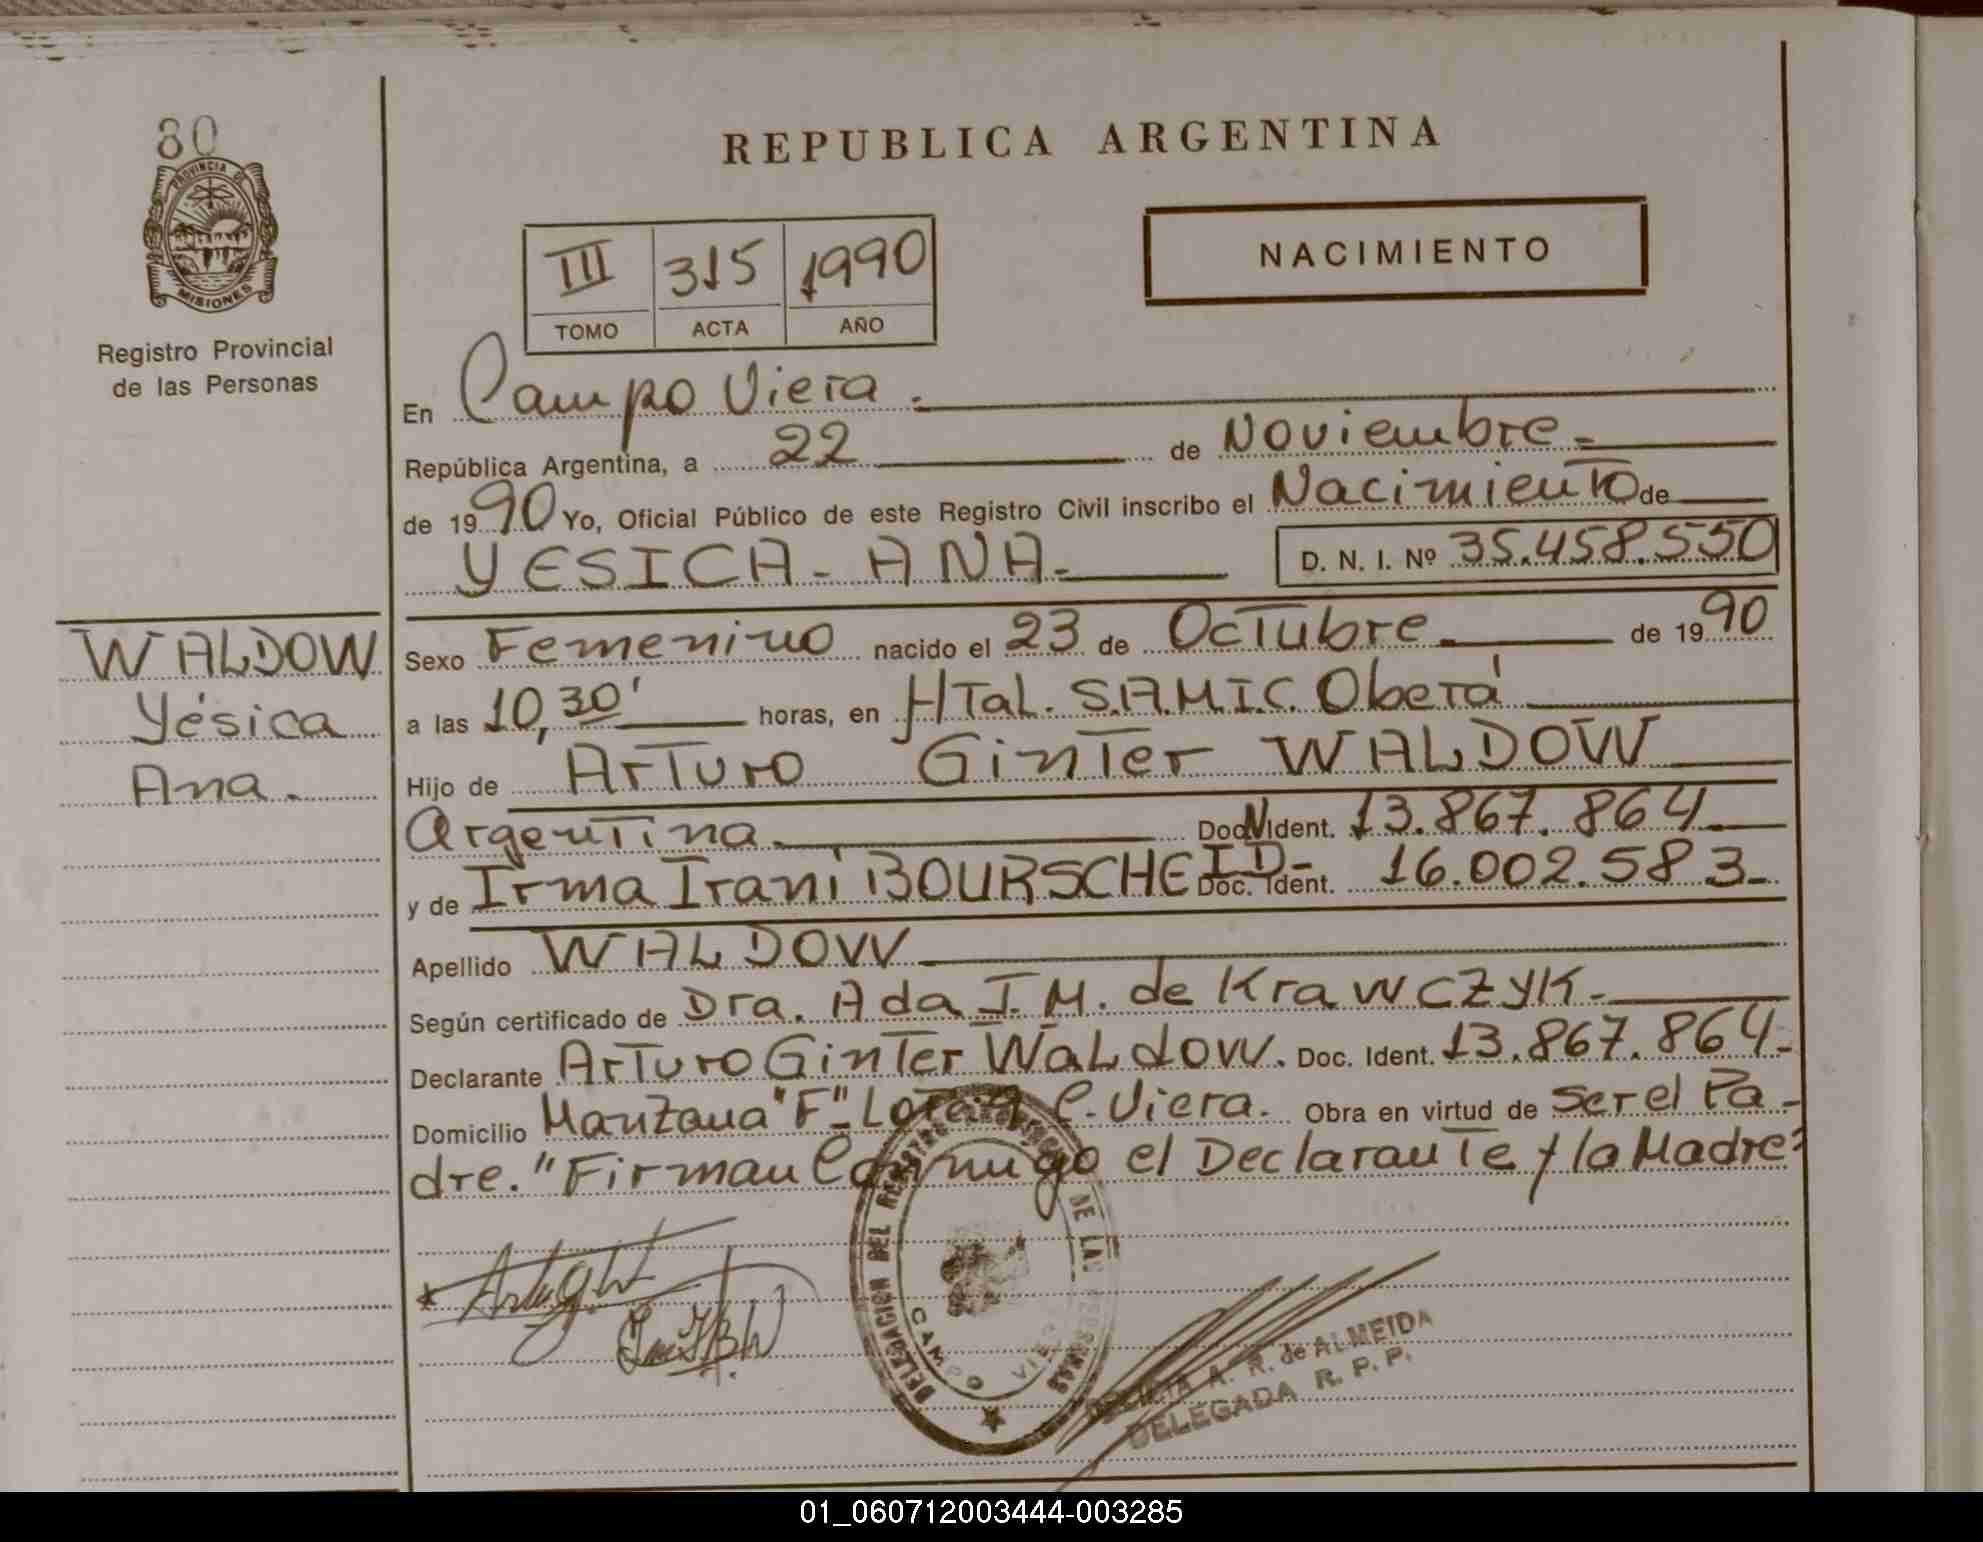 80
PROVINCIA DE
MISIONES
Registro Provincial
de las Personas
REPUBLICA ARGENTINA
NACIMIENTO
III 315 1990
TOMO ACTA AÑO
En Campo Viera.
República Argentina, a 22 de Noviembre.-
de 1990 Yo, Oficial Público de este Registro Civil inscribo el Nacimiento de
YESICA - ANA.-
D. N. I. Nº 35.458.550
WALDOW
Yésica
Ana.
Sexo Femenino nacido el 23 de Octubre.- de 1990
a las 10,30' horas, en HTal. S.A.M.I.C. Oberá
Hijo de Arturo Ginter WALDOW
Argentina.- Doc. N Ident. 13.867.864
y de Irma Irani BOURSCHEID- Doc. Ident. 16.002.583-
Apellido WALDOW
Según certificado de Dra. Ada I. M. de Krawczyk.-
Declarante Arturo Ginter Waldow. Doc. Ident. 13.867.864-
Domicilio Manzana "F" C. Viera. Obra en virtud de ser el Pa-
dre. "Firman Conmigo el Declarante y la Madre"
DELEGACION DEL REGISTRO DE LAS PERSONAS
CAMPO VIERA
A. R. de ALMEIDA
DELEGADA R. P. P.
01_060712003444-003285